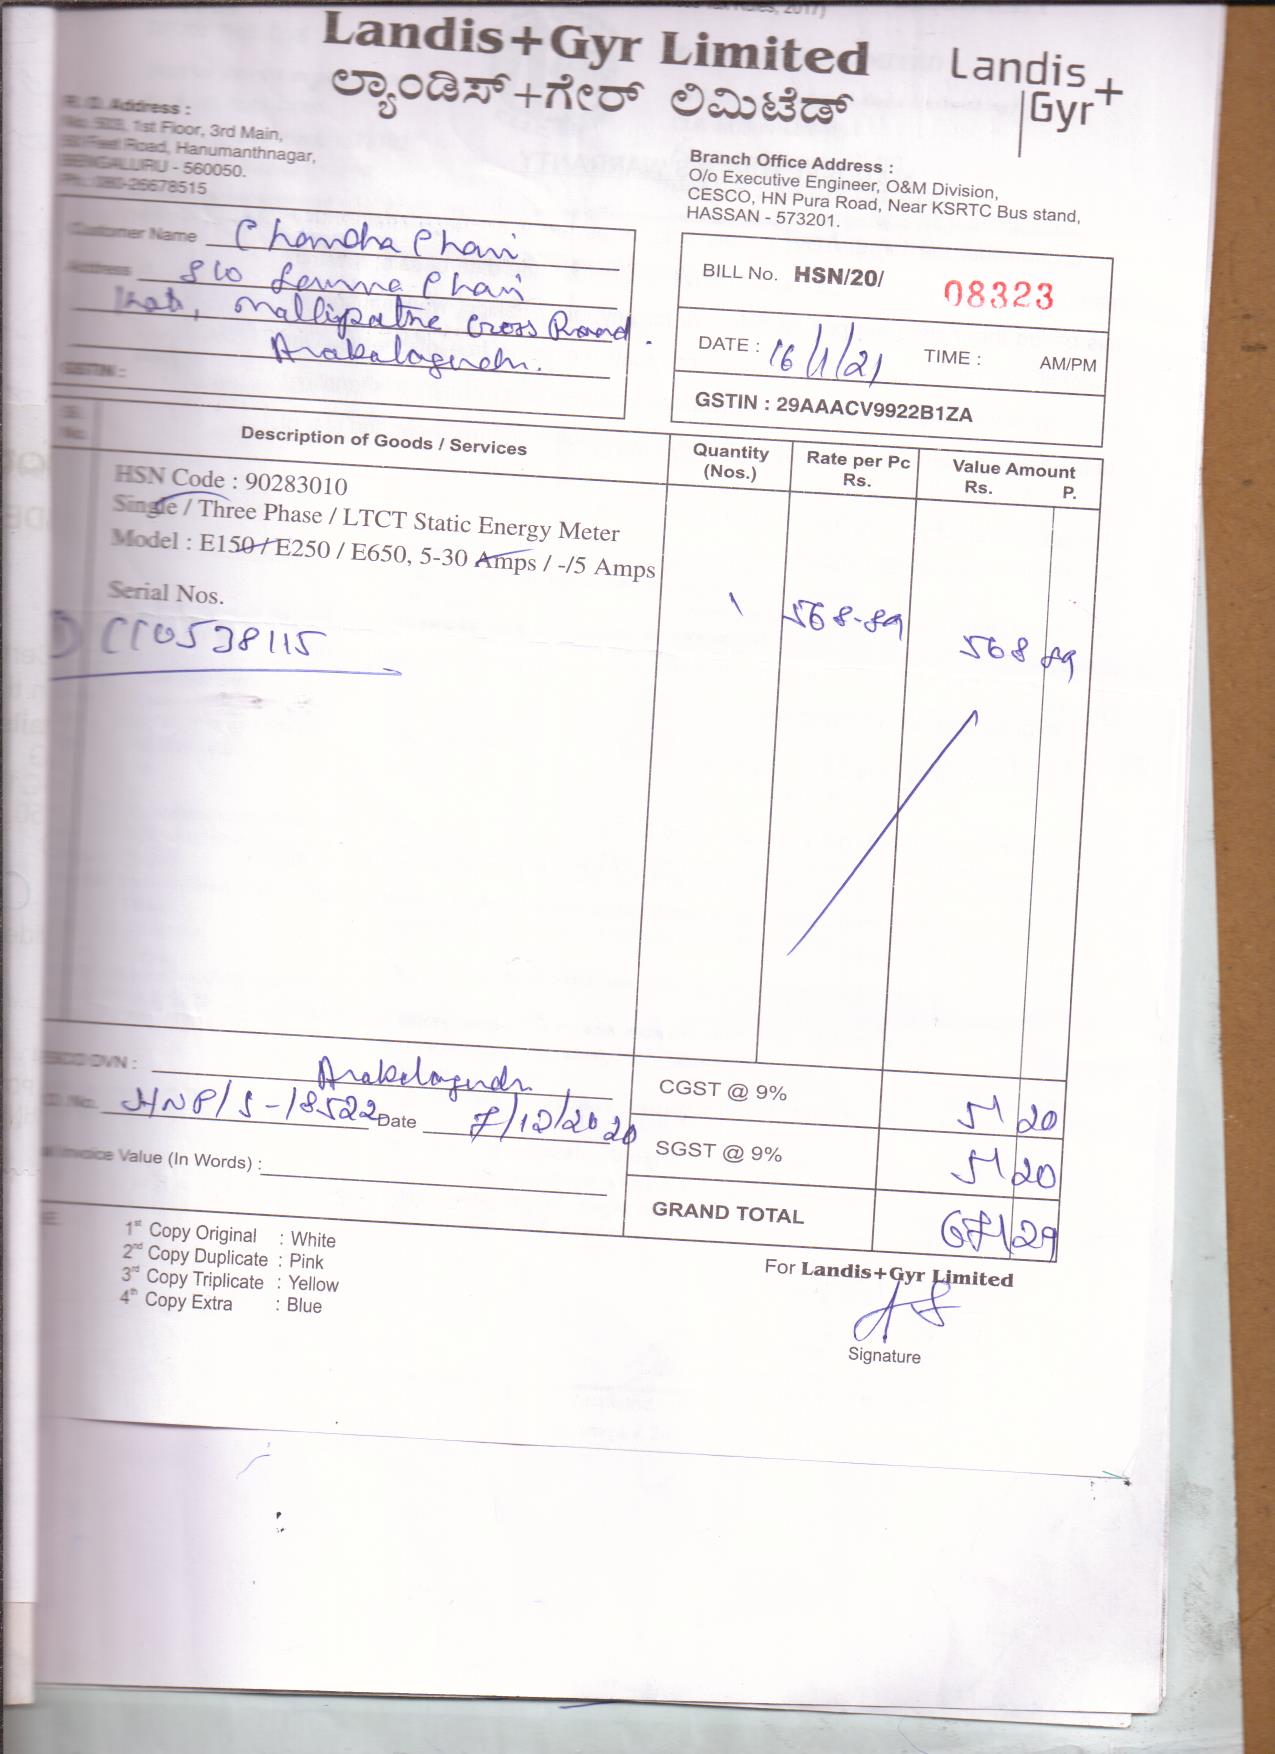 Landis+Gyr Limited
ಲ್ಯಾಂಡಿಸ್+ಗೇರ್ ಲಿಮಿಟೆಡ್
Landis+
Gyr
R. O. Address :
No. 503, 1st Floor, 3rd Main,
Feet Road, Hanumanthnagar,
BENGALURU - 560050.
Ph.: 080-26678515
Branch Office Address :
O/o Executive Engineer, O&M Division,
CESCO, HN Pura Road, Near KSRTC Bus stand,
HASSAN - 573201.
Customer Name Chandra Chari
Address S/o Chari
Mallipatne Cross Road.
Arakalagudu.
GSTIN :
BILL No. HSN/20/ 08323
DATE : 16/1/21 TIME : AM/PM
GSTIN : 29AAACV9922B1ZA
Sl. No. Description of Goods / Services Quantity (Nos.) Rate per Pc Rs. Value Amount Rs. P.
HSN Code : 90283010
Single / Three Phase / LTCT Static Energy Meter
Model : E150 / E250 / E650, 5-30 Amps / -/5 Amps
Serial Nos.
1 568-89 568 89
CESCO DVN : Arakalagudu
No. HNP/S-18522 Date 7/12/2020
CGST @ 9% 51 20
SGST @ 9% 51 20
Invoice Value (In Words) :
GRAND TOTAL 671 29
1st Copy Original : White
2nd Copy Duplicate : Pink
3rd Copy Triplicate : Yellow
4th Copy Extra : Blue
For Landis+Gyr Limited
Signature